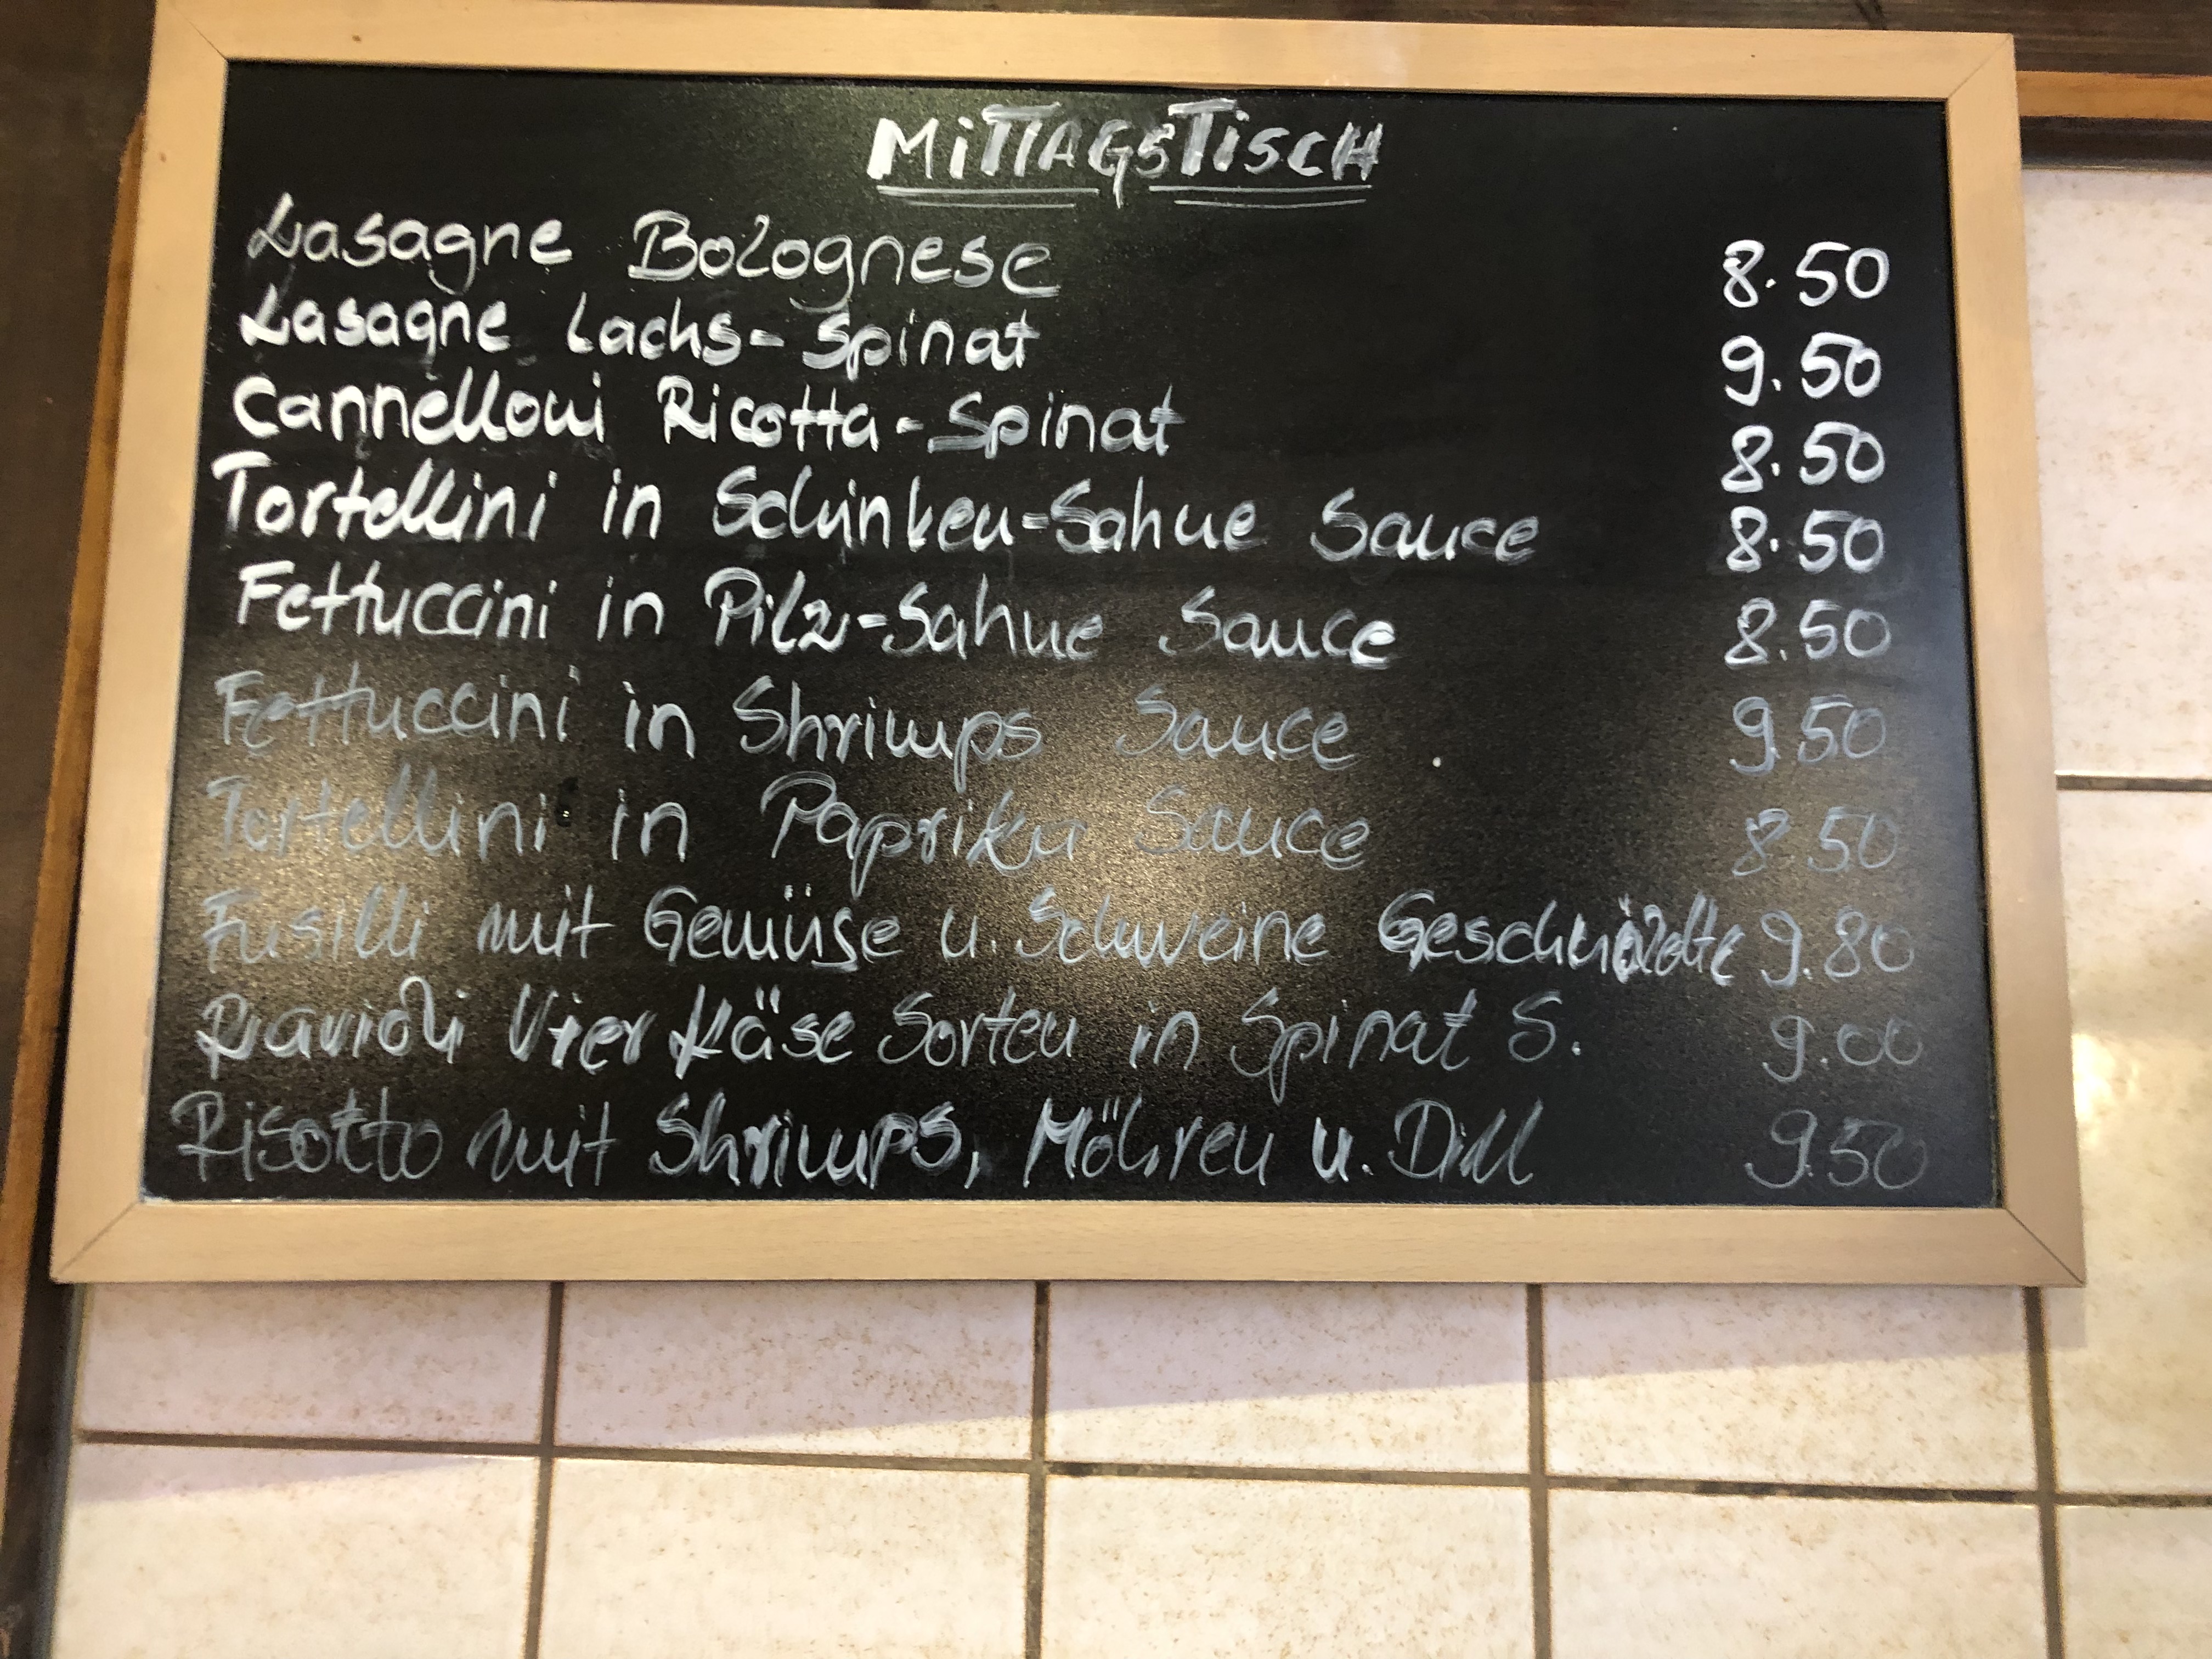 MITTAGSTISCH
Lasagne Bolognese 8.50
Lasagne Lachs-Spinat 9.50
Cannelloni Ricotta-Spinat 8.50
Tortellini in Schinken-Sahne Sauce 8.50
Fettuccini in Pilz-Sahne Sauce 8.50
Fettuccini in Shrimps Sauce 9.50
Tortellini in Paprika Sauce 8.50
Fusilli mit Gemüse u. Schweine 9.80
Ravioli Vier Käse Sorten in Spinat S. 9.00
Risotto mit Shrimps, Möhren u. Dill 9.50